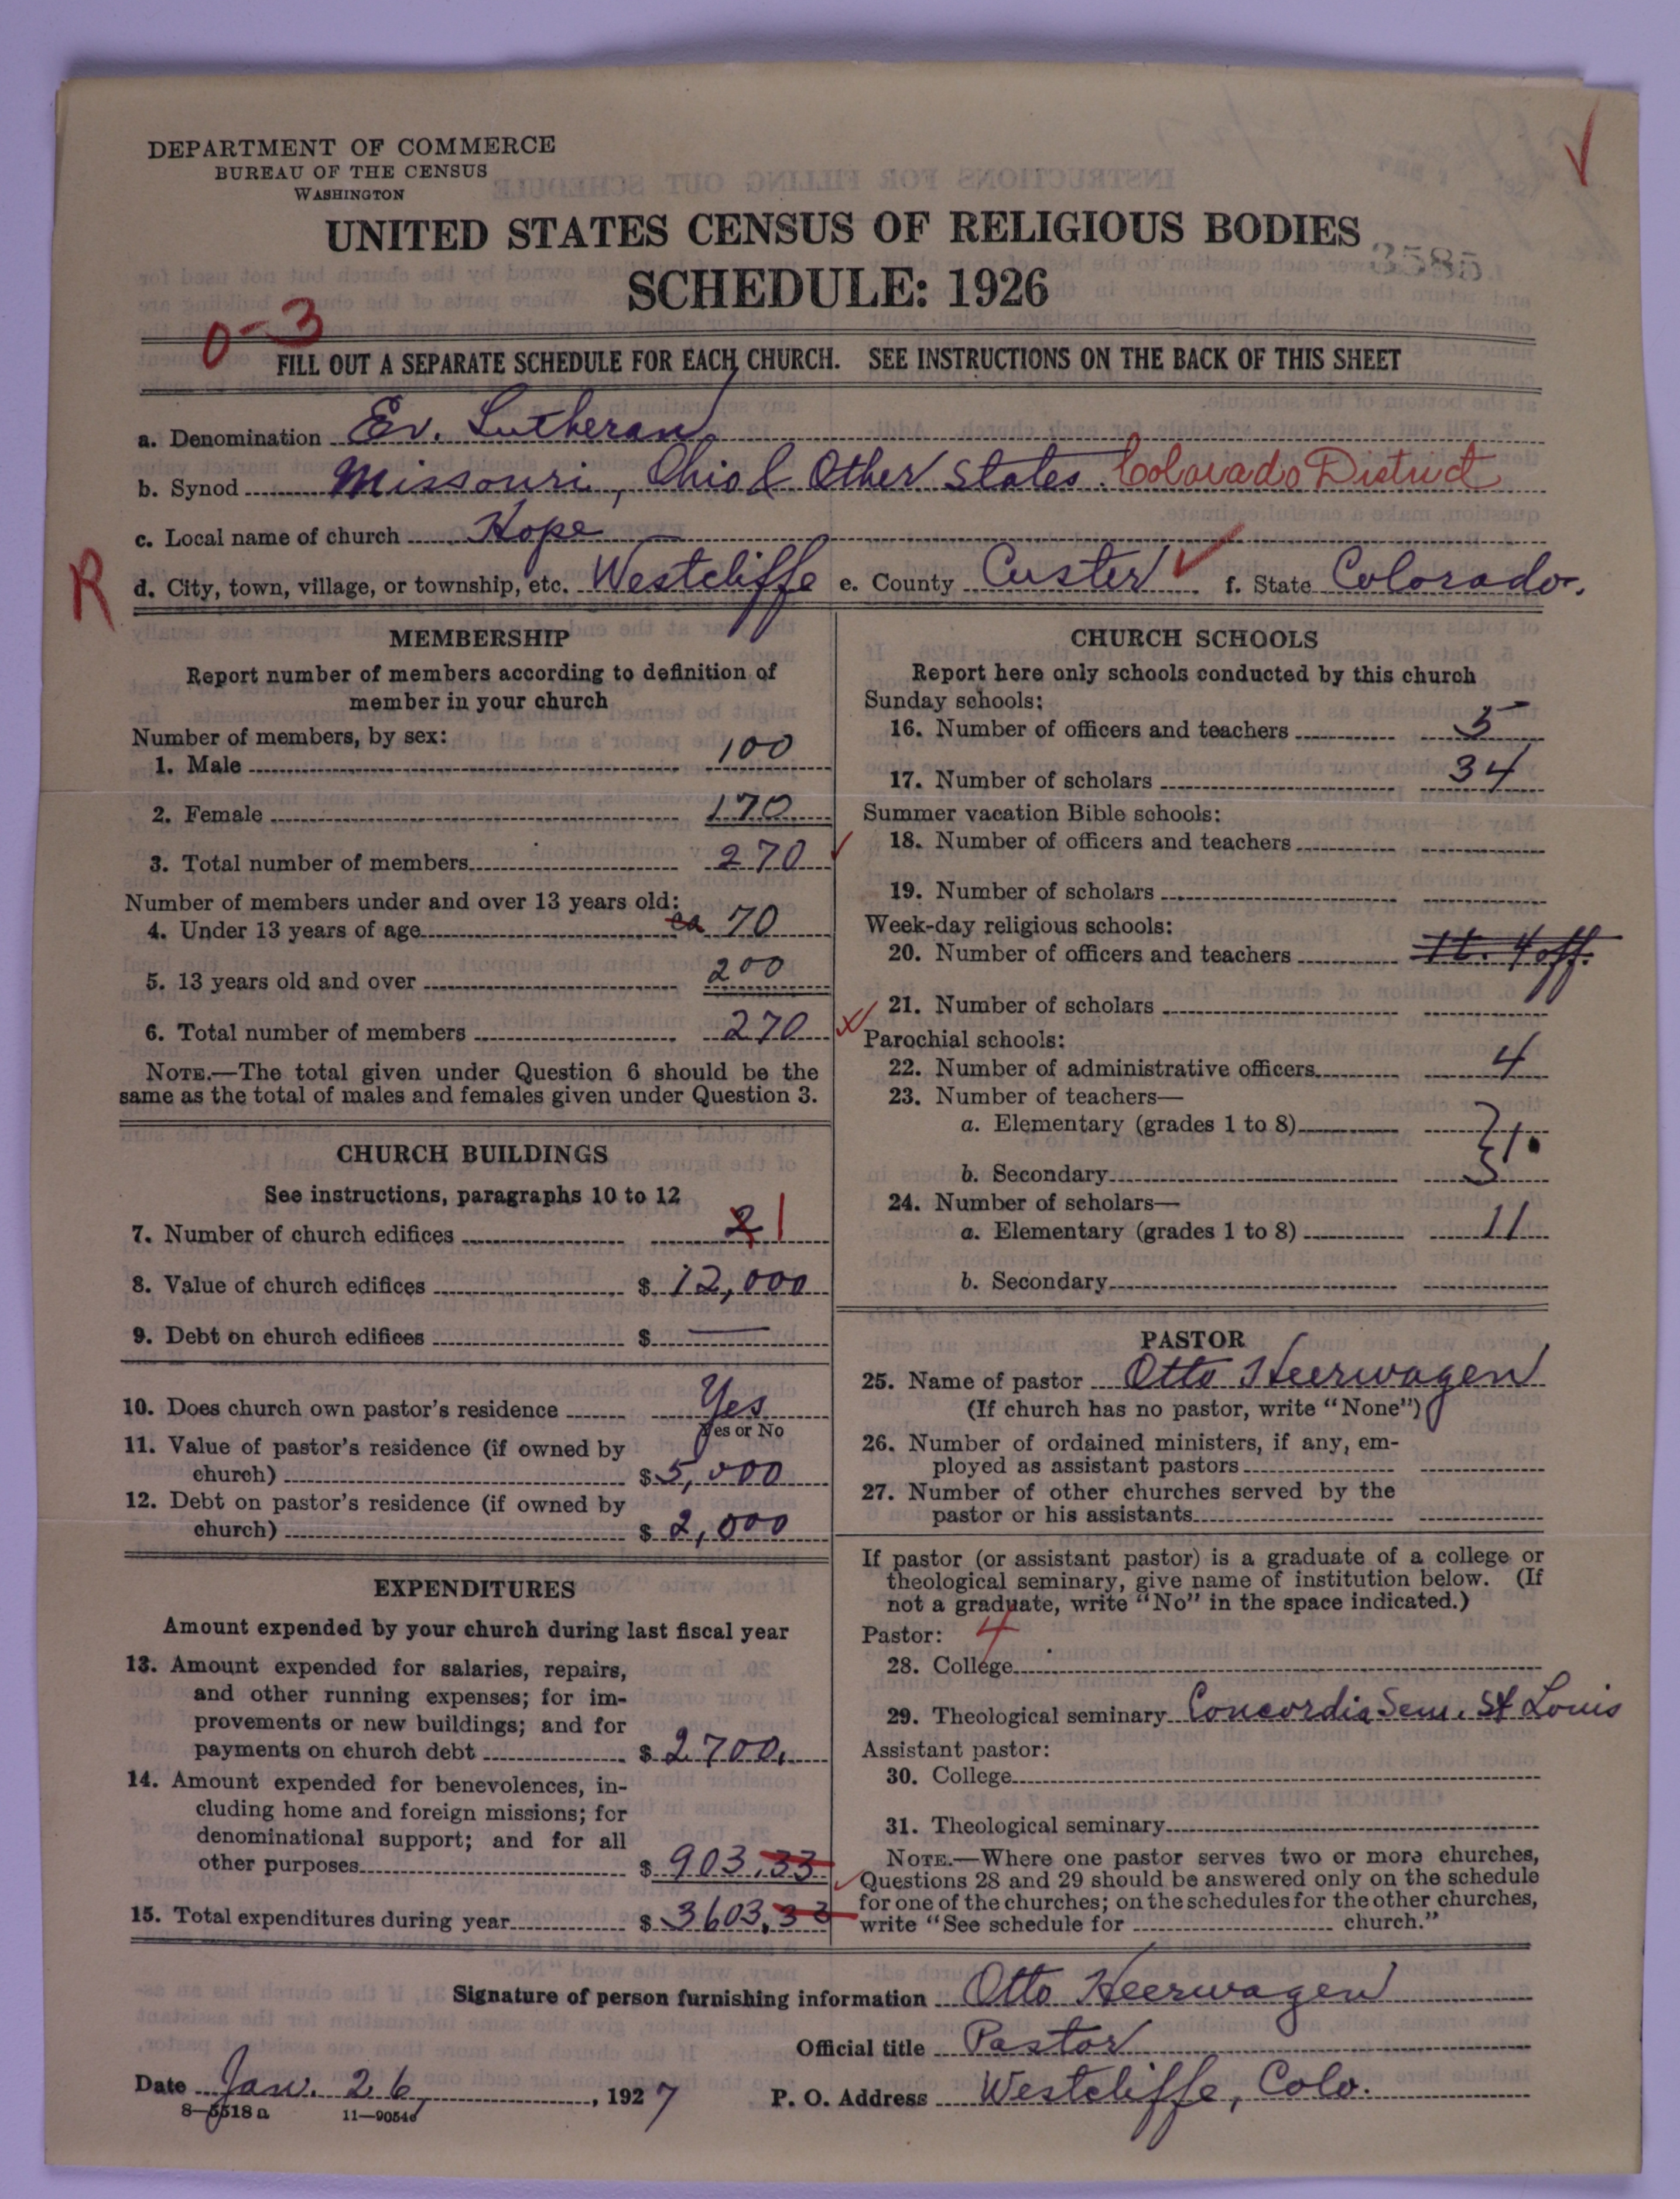 DEPARTMENT OF COMMERCE
BUREAU OF THE CENSUS
WASHINGTON
UNITED STATES CENSUS OF RELIGIOUS BODIES
3585
SCHEDULE: 1926
0-3
FILL OUT A SEPARATE SCHEDULE FOR EACH CHURCH. SEE INSTRUCTIONS ON THE BACK OF THIS SHEET
a. Denomination Ev. Lutheran
b. Synod Missouri, Ohio & Other States. Colorado District
c. Local name of church Hope
R
d. City, town, village, or township, etc. Westcliffe e. County Custer f. State Colorado.
MEMBERSHIP
Report number of members according to definition of
member in your church
Number of members, by sex:
1. Male 100
2. Female 170
3. Total number of members 270
Number of members under and over 13 years old:
4. Under 13 years of age ca 70
5. 13 years old and over 200
6. Total number of members 270
NOTE.—The total given under Question 6 should be the
same as the total of males and females given under Question 3.
CHURCH BUILDINGS
See instructions, paragraphs 10 to 12
7. Number of church edifices 2 1
8. Value of church edifices $ 12,000
9. Debt on church edifices $ —
10. Does church own pastor's residence Yes
Yes or No
11. Value of pastor's residence (if owned by
church) $ 5,000
12. Debt on pastor's residence (if owned by
church) $ 2,000
EXPENDITURES
Amount expended by your church during last fiscal year
13. Amount expended for salaries, repairs,
and other running expenses; for im-
provements or new buildings; and for
payments on church debt $ 2700.
14. Amount expended for benevolences, in-
cluding home and foreign missions; for
denominational support; and for all
other purposes $ 903.33
15. Total expenditures during year $ 3603.33
CHURCH SCHOOLS
Report here only schools conducted by this church
Sunday schools:
16. Number of officers and teachers 5
17. Number of scholars 34
Summer vacation Bible schools:
18. Number of officers and teachers
19. Number of scholars
Week-day religious schools:
20. Number of officers and teachers 4 off.
21. Number of scholars
Parochial schools:
22. Number of administrative officers 4
23. Number of teachers—
a. Elementary (grades 1 to 8) 1.
b. Secondary
24. Number of scholars—
a. Elementary (grades 1 to 8) 11
b. Secondary
PASTOR
25. Name of pastor Otto Heerwagen
(If church has no pastor, write "None")
26. Number of ordained ministers, if any, em-
ployed as assistant pastors
27. Number of other churches served by the
pastor or his assistants
If pastor (or assistant pastor) is a graduate of a college or
theological seminary, give name of institution below. (If
not a graduate, write "No" in the space indicated.)
Pastor: 4
28. College
29. Theological seminary Concordia Sem. St Louis
Assistant pastor:
30. College
31. Theological seminary
NOTE.—Where one pastor serves two or more churches,
Questions 28 and 29 should be answered only on the schedule
for one of the churches; on the schedules for the other churches,
write "See schedule for church."
Signature of person furnishing information Otto Heerwagen
Official title Pastor
Date Jan. 26, 1927 P. O. Address Westcliffe, Colo.
8—5518a 11—90546